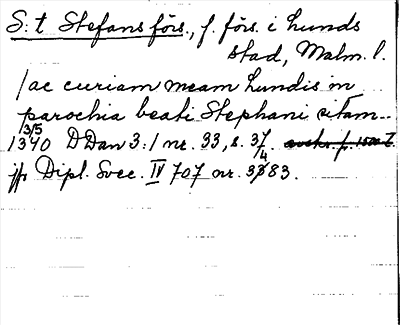 S:t Stefans förs., f. förs. i Lunds
stad, Malm. l.
/ac curiam meam Lundis in
parochia beati Stephani sitam..
1340 3/5 DDan 3:1 nr. 33, s. 37
4
jfr Dipl. Svec. IV 707 nr. 3383.